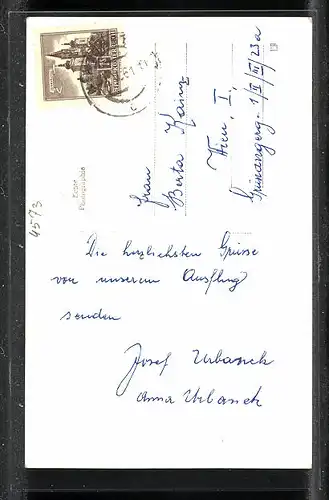 Die herzlichsten Grüsse
von unserem Ausflug
senden
Josef Urbanek
Anna Urbanek
Frau
Berta Kainz
Wien, I,
Grünangerg. 1/II/III/23a
Echte
Photographie
4573